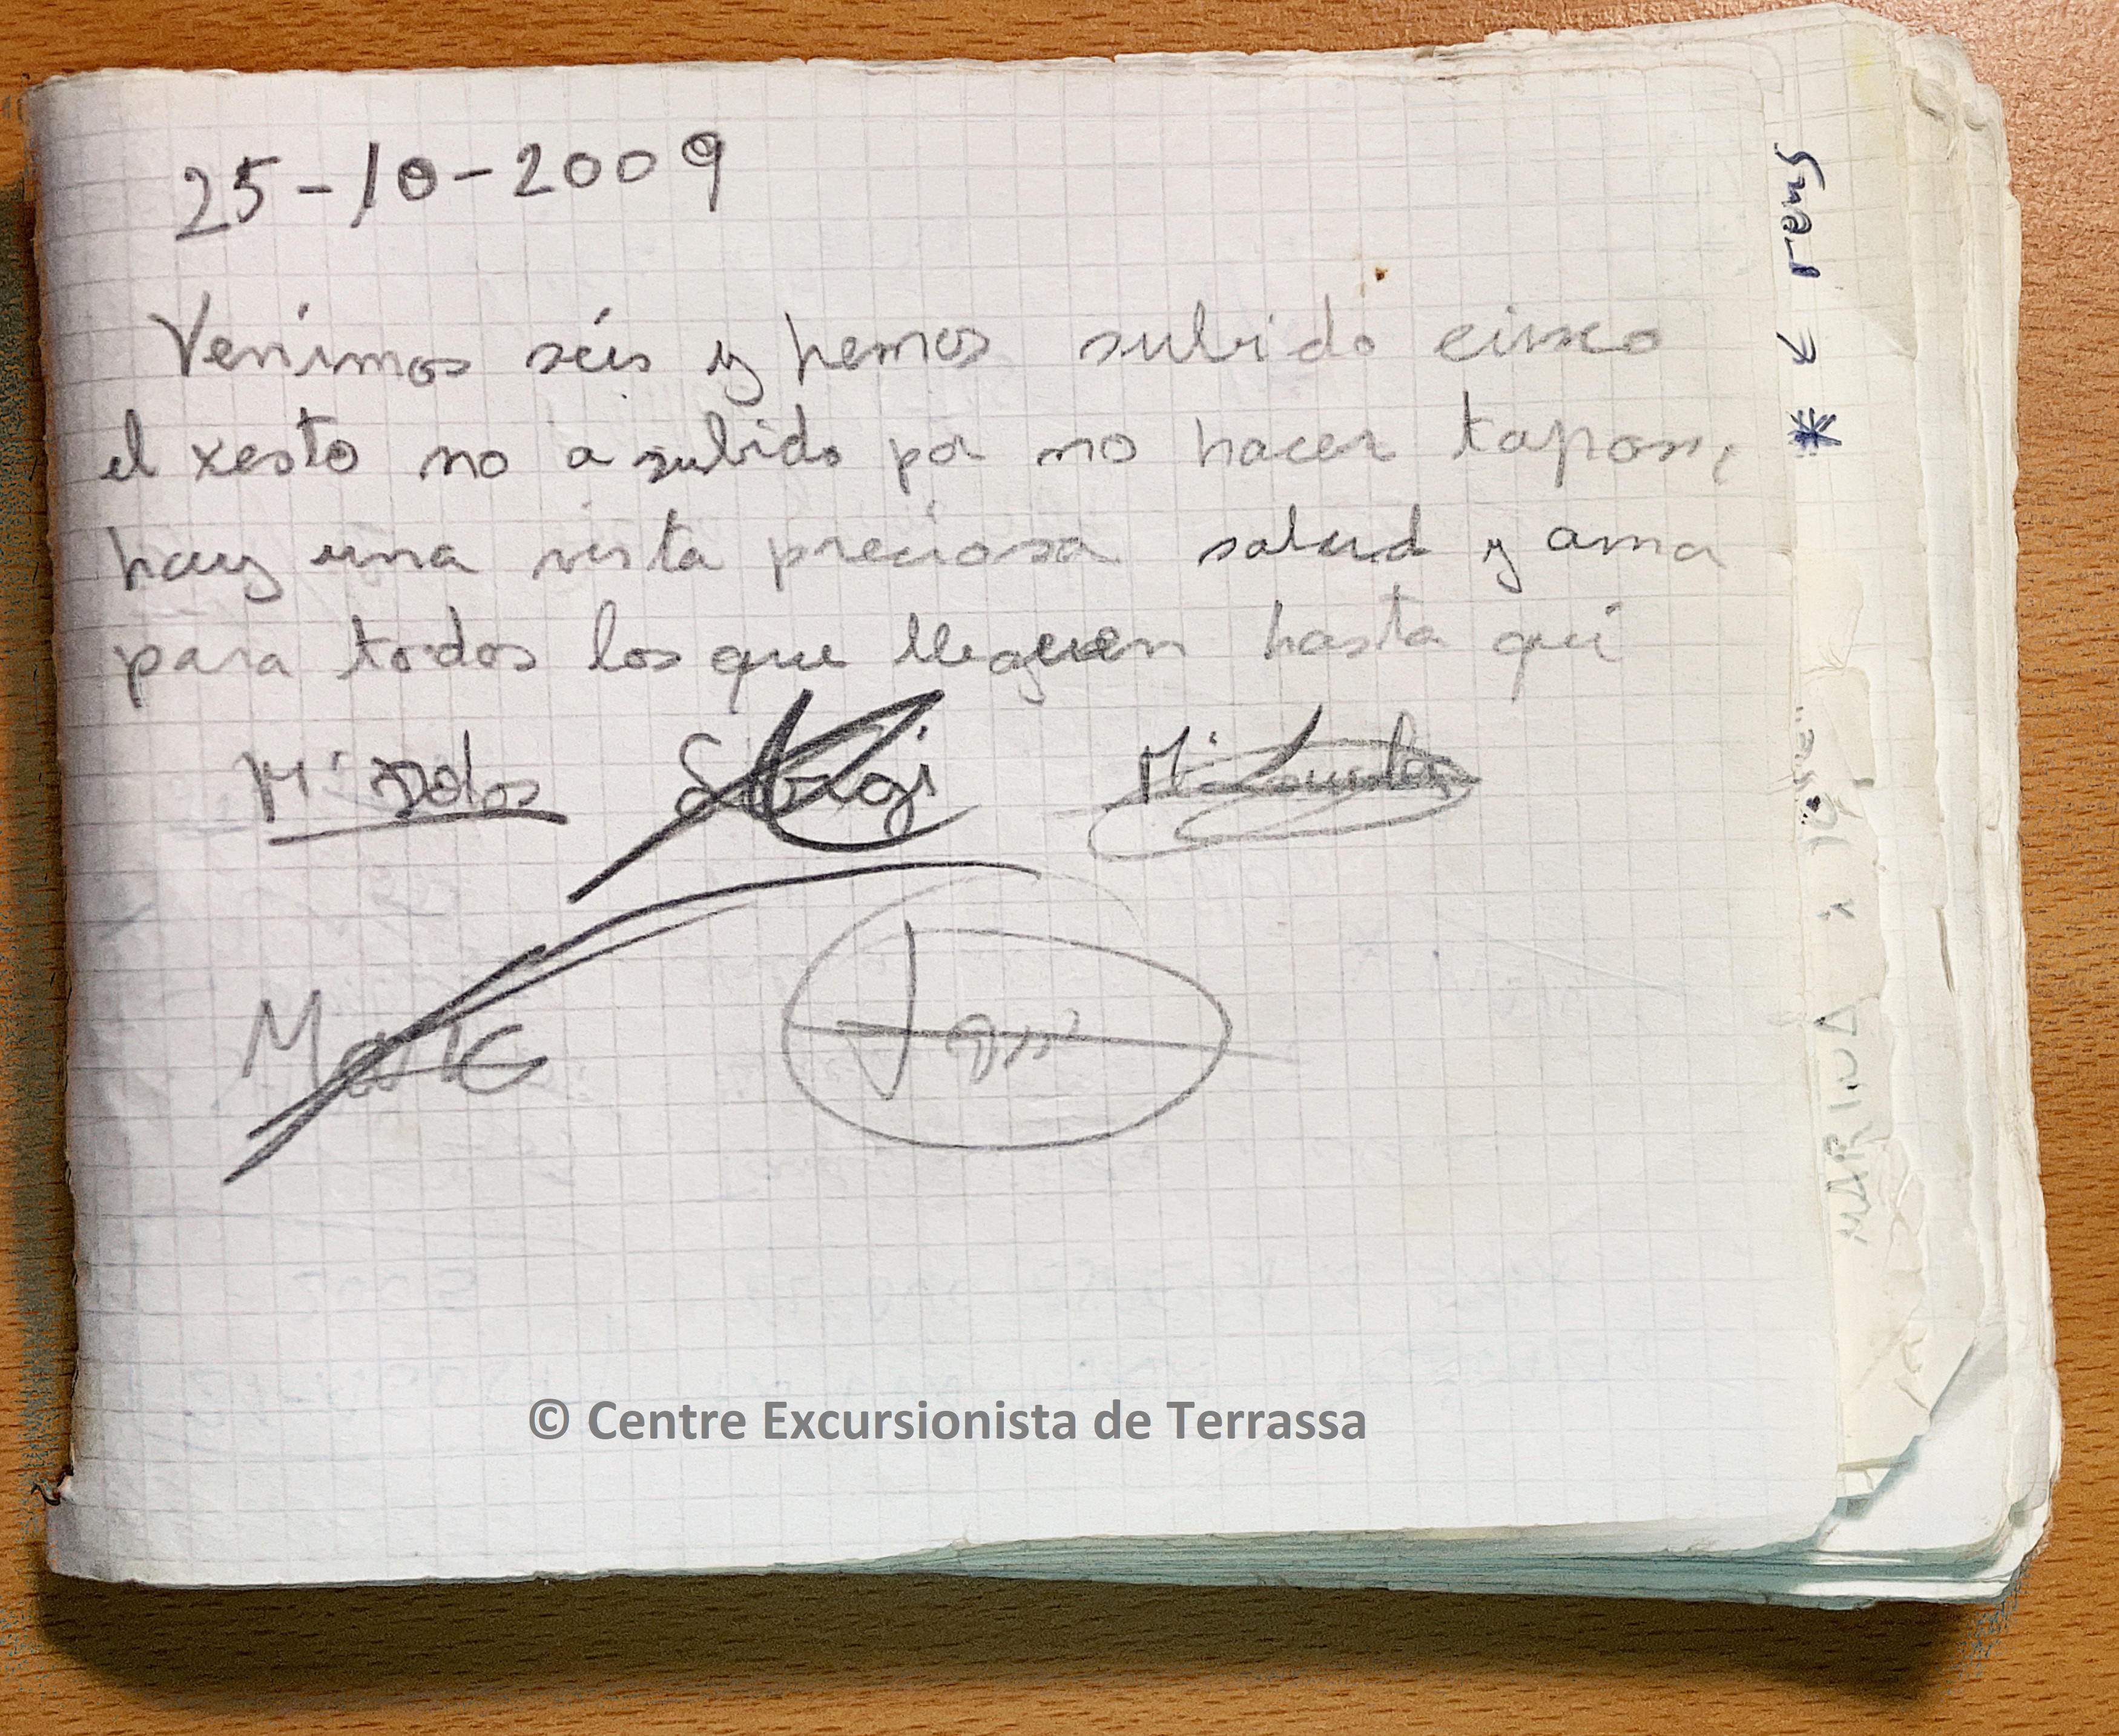 25-10-2009
Venimos séis y hemos subido cinco
el xesto no a subido por no hacer tapon,
hay una vista preciosa salud y ama
para todos los que lleguen hasta qui
Mª Dolos Sergi Mª Lourdes
Marc
MARINA
© Centre Excursionista de Terrassa